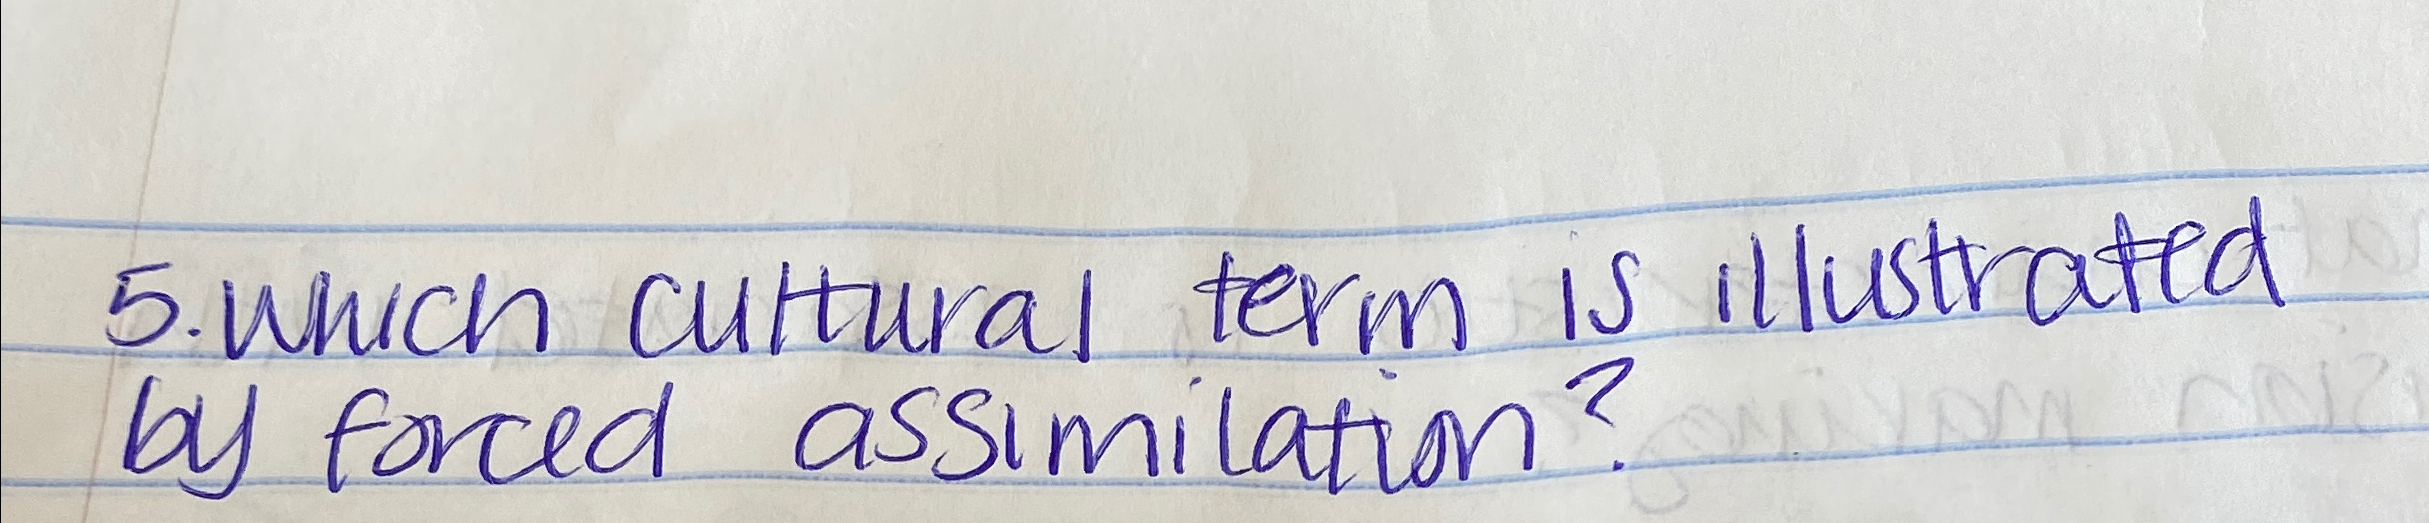 5. Which cultural term is illustrated
by forced assimilation?